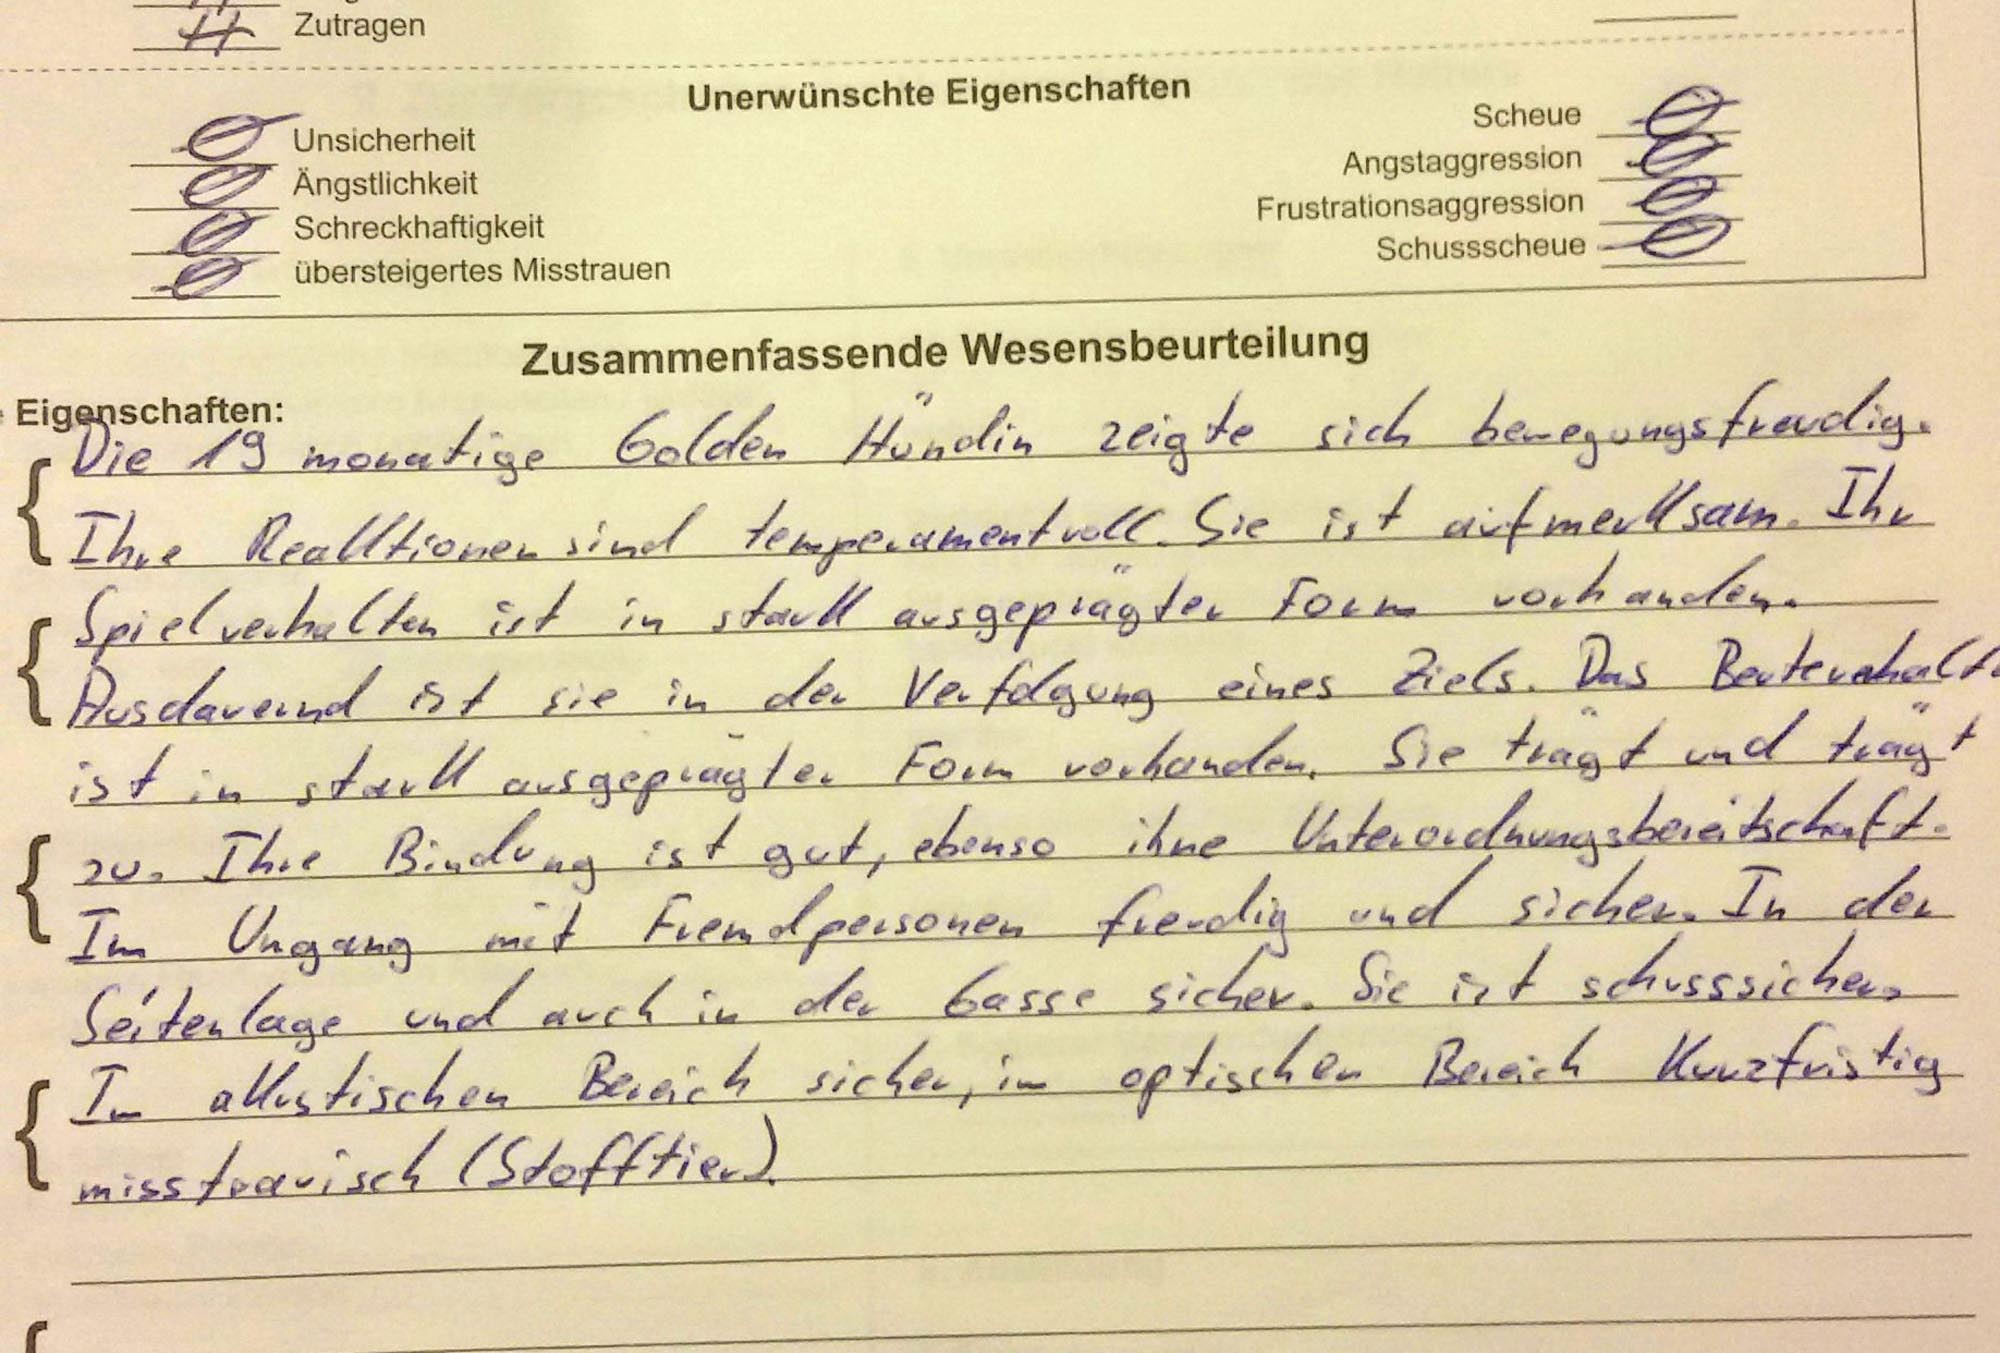 4 Zutragen
Unerwünschte Eigenschaften
Ø Unsicherheit Scheue Ø
Ø Ängstlichkeit Angstaggression Ø
Ø Schreckhaftigkeit Frustrationsaggression Ø
Ø übersteigertes Misstrauen Schussscheue Ø
Zusammenfassende Wesensbeurteilung
Eigenschaften:
Die 19 monatige Golden Hündin zeigte sich bewegungsfreudig.
Ihre Reaktionen sind temperamentvoll. Sie ist aufmerksam. Ihr
Spielverhalten ist in stark ausgeprägter Form vorhanden.
Ausdauernd ist sie in der Verfolgung eines Ziels. Das Beuteverhalte
ist in stark ausgeprägter Form vorhanden. Sie trägt und trägt
zu. Ihre Bindung ist gut, ebenso ihre Unterordnungsbereitschaft.
Im Umgang mit Fremdpersonen freudig und sicher. In der
Seitenlage und auch in der Gasse sicher. Sie ist schusssicher.
Im akustischen Bereich sicher, im optischen Bereich kurzfristig
misstrauisch (Stofftier).